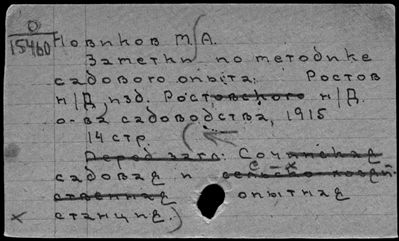 О
15460
Новиков М.А.
Заметки по методике
садового опыта. Ростов
н/Д, изд. Ростовского н/Д.
о-ва садоводства, 1915
14 стр.
Перед загл: Сочинская
садовая и с.-х. сельско-хозяй-
ственная опытная
станция.)